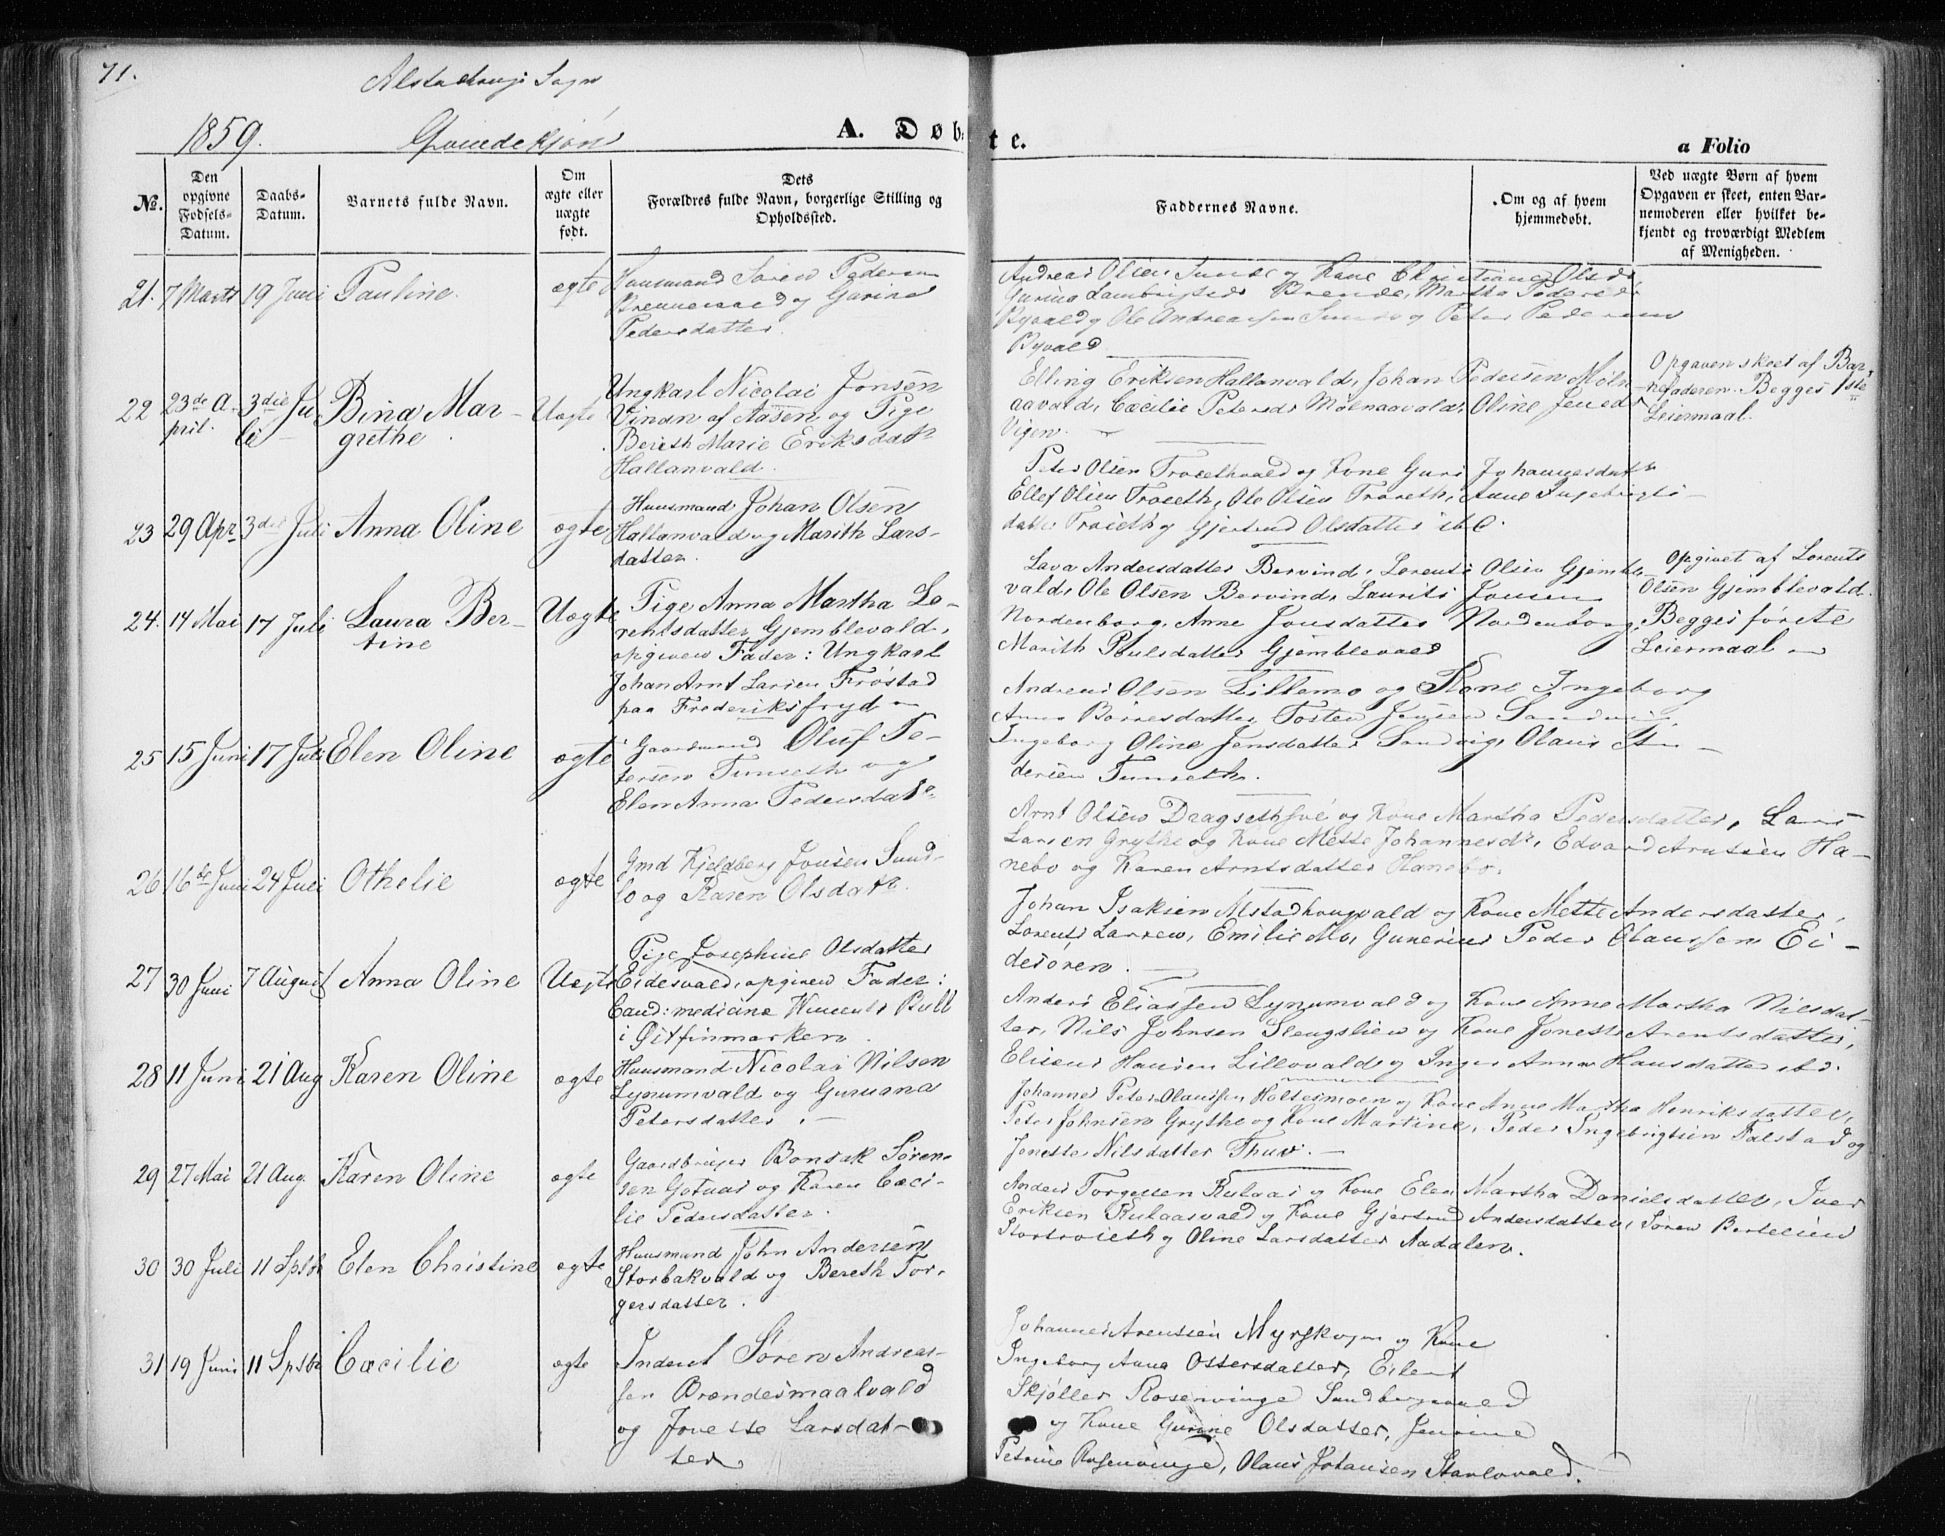 71.
Alstadhaugs Sogn
1859.
Qvindekjøn
A. Døbte.
a Folio
No.
Den opgivne Fødsels-Datum.
Daabs-Datum.
Barnets fulde Navn.
Om ægte eller uægte født.
Dets Forældres fulde Navn, borgerlige Stilling og Opholdssted.
Faddernes Navne.
Om og af hvem hjemmedøbt.
Ved uægte Børn af hvem Opgaven er skeet, enten Barnemoderen eller hvilket bekjendt og troværdigt Medlem af Menigheden.
21. 7 Marts 19 Juni Pauline. ægte
Huusmand Sören Pedersen
og Gurine
Pedersdatter.
Andreas Olsen og Kone Christiane Olsdr
Martha Pedersdr
Byvald og Ole Andreassen og Peter Pedersen
Byvald
22 23de April. 3die Juli Bina Margrethe. Uægte
Ungkarl Nicolai Jonsen
Vinan af Aasen og Pige
Bereth Marie Eriksdatr
Hallanvald.
Elling Eriksen Hallanvald, Johan Pedersen Möln-
aavald, Cæcilie Petersdr Mölnaavald, Oline Jensdr
Vigen.
Opgaven skeet af Bar-
nefaderen. Begges 1ste
Leiermaal.
23 29 Apr 3die Juli Anna Oline ægte
Huusmand Johan Olsen
Hallanvald og Marith Lars-
datter.
Peter Olsen og Kone Guri Johannesdatr
Ellef Olsen Troseth, Ole Olsen Troseth, Anne Ingebrigts-
datter Troseth og Gjertrud Olsdatter ibd.
24. 14 Mai 17 Juli Laura Bertine Uægte
Pige Anna Martha Lo-
rentsdatter Gjemblevald,
opgiven Fader: Ungkarl
Johan Arnt Larsen Fröstad
paa Frederiksfryd
Lava Andersdatter Bervind, Lorents Olsen Gjemble-
vald, Ole Olsen Bervind, Laurits Jonsen
Nordenborg, Anne Jonsdatter Nordenborg,
Marith Poulsdatter Gjemblevald
Opgivet af Lorents
Olsen Gjemblevald.
Begges förste
Leiermaal
25 15 Juni 17 Juli Elen Oline ægte
Gaardmand Oluf Pe-
tersen Tunseth og
Elen Anna Pedersdatr.
Andreas Olsen Lillemo og Kone Ingeborg
Anna Börresdatter, Tosten Jensen Sandvig,
Ingeborg Oline Jensdatter Sandvig, Olaus An-
dersen Tunseth.
26 16de Juni 24 Juli Othelie ægte
Gmd Kjeldberg Jonsen Sund-
bo og Karen Olsdatr.
Arnt Olsen og Kone Martha Pedersdatter, Lars
Larsen Grythe og Kone Mette Johannesdr, Edvard Arntsen Ha-
nebo og Karen Arntsdatter Hanebo.
27 30 Juni 7 August Anna Oline Uægte
Pige Josephine Olsdatter
Eidesvald, opgiven Fader:
Cand: medicine Bull
i Østfinmarken.
Johan Isaksen Alstadhougvald og Kone Mette Andersdatter,
Lorents Larsen, Emilie Mo, Gunerius Peder Olaussen Ei-
desoren.
28 11 Juni 21 Aug Karen Oline ægte
Huusmand Nicolai Nilsen
Lynumvald og Guruana
Petersdatter.
Anders Eliassen Lynumvald og Kone Anne Martha Nilsdat-
ter, Nils Johnsen Slengslien og Kone Jonette Arentsdatter,
Eliseus Hansen Lillovald og Inger Anna Hansdatter ibd.
29 27 Mai 21 Aug. Karen Oline ægte
Gaardbruger Bonsak Sören-
sen Gotvas og Karen Cæci-
lie Pedersdatter.
Johannes Peter Olaussen Holtesmoen og Kone Anne Martha Henriksdatter,
Peter Johnsen Grythe og Kone Martine, Peder Ingebrigtsen Falstad og
Jonette Nilsdatter Thuv.
30 30 Juli 11 Sptbr Elen Christine ægte
Huusmand John Andersen
Storbakvald og Bereth Tor-
gersdatter.
Anders Torgersen Rulaas og Kone Elen Martha Danielsdatter, Iver
Eriksen Rulaasvald og Kone Gjertrud Andersdatter, Sören Bertelsen
og Oline Larsdatter Aadalen.
31 19 Juni 11 Sptbr Cæcilie ægte
Inderst Sören Andreas-
sen Brandesmaalvald
og Jonette Larsdat-
ter
Johannes Arentsen Myrskogen og Kone
Ingeborg Anna Ottersdatter, Eilert
Skjöller Rosenvinge Sundbyvald
og Kone Gurine Olsdatter, Jensine
Petrine Rosenvinge, Olaus Johansen Stavlovald.